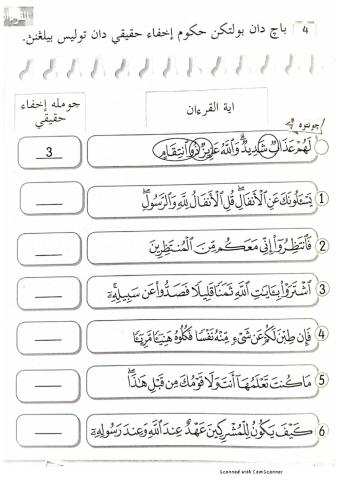 4 باچ دان بولتكن حكوم إخفاء حقيقي دان توليس بيلڠنڽ.
اية القرءان
جومله إخفاء حقيقي
چونتوه
لَهُمْ عَذَابٌ شَدِيدٌ وَٱللَّهُ عَزِيزٌ ذُو ٱنتِقَامٍ
3
1 يَسْـَٔلُونَكَ عَنِ ٱلْأَنفَالِ قُلِ ٱلْأَنفَالُ لِلَّهِ وَٱلرَّسُولِ
2 فَٱنتَظِرُوٓا۟ إِنِّى مَعَكُم مِّنَ ٱلْمُنتَظِرِينَ
3 ٱشْتَرَوْا۟ بِـَٔايَـٰتِ ٱللَّهِ ثَمَنًا قَلِيلًا فَصَدُّوا۟ عَن سَبِيلِهِۦٓ
4 فَإِن طِبْنَ لَكُمْ عَن شَىْءٍ مِّنْهُ نَفْسًا فَكُلُوهُ هَنِيٓـًٔا مَّرِيٓـًٔا
5 مَا كُنتَ تَعْلَمُهَآ أَنتَ وَلَا قَوْمُكَ مِن قَبْلِ هَـٰذَا
6 كَيْفَ يَكُونُ لِلْمُشْرِكِينَ عَهْدٌ عِندَ ٱللَّهِ وَعِندَ رَسُولِهِۦٓ
Scanned with CamScanner